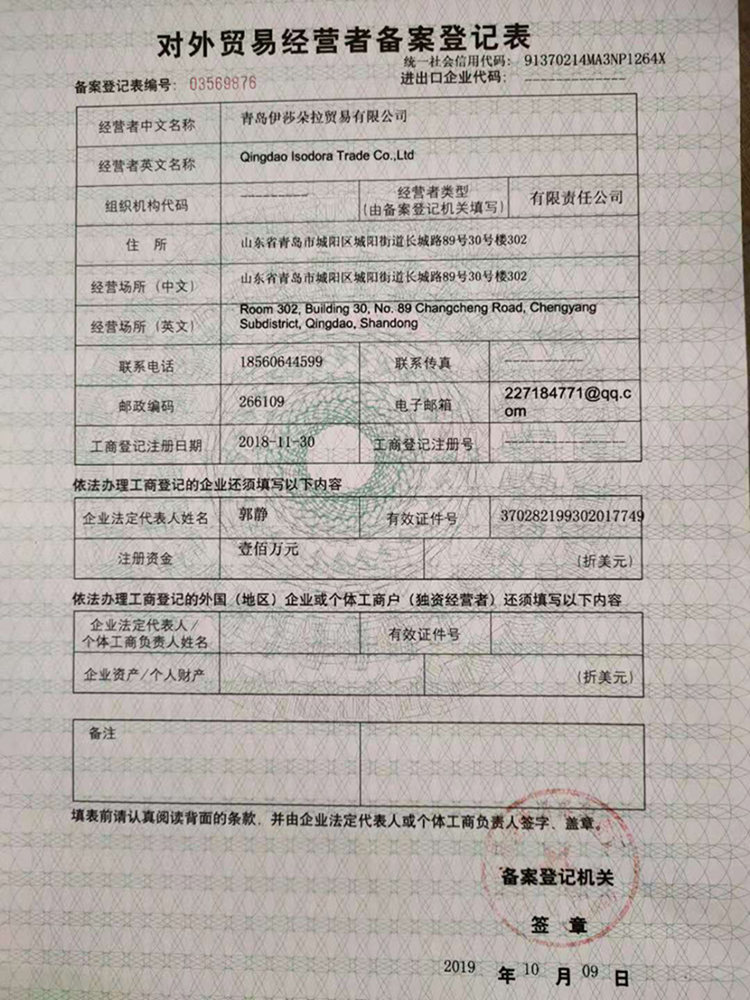 对外贸易经营者备案登记表
统一社会信用代码: 91370214MA3NP1264X
备案登记表编号: 03569876 进出口企业代码: -------------
经营者中文名称 青岛伊莎朵拉贸易有限公司
经营者英文名称 Qingdao Isodora Trade Co.,Ltd
组织机构代码 --------- 经营者类型 有限责任公司
(由备案登记机关填写)
住 所 山东省青岛市城阳区城阳街道长城路89号30号楼302
经营场所（中文） 山东省青岛市城阳区城阳街道长城路89号30号楼302
经营场所（英文） Room 302, Building 30, No. 89 Changcheng Road, Chengyang
Subdistrict, Qingdao, Shandong
联系电话 18560644599 联系传真 ----------
邮政编码 266109 电子邮箱 227184771@qq.c
om
工商登记注册日期 2018-11-30 工商登记注册号 ---------------
依法办理工商登记的企业还须填写以下内容
企业法定代表人姓名 郭静 有效证件号 370282199302017749
注册资金 壹佰万元 (折美元)
依法办理工商登记的外国（地区）企业或个体工商户（独资经营者）还须填写以下内容
企业法定代表人/
个体工商负责人姓名 有效证件号
企业资产/个人财产 (折美元)
备注
填表前请认真阅读背面的条款，并由企业法定代表人或个体工商负责人签字、盖章。
备案登记机关
签 章
2019 年 10 月 09 日